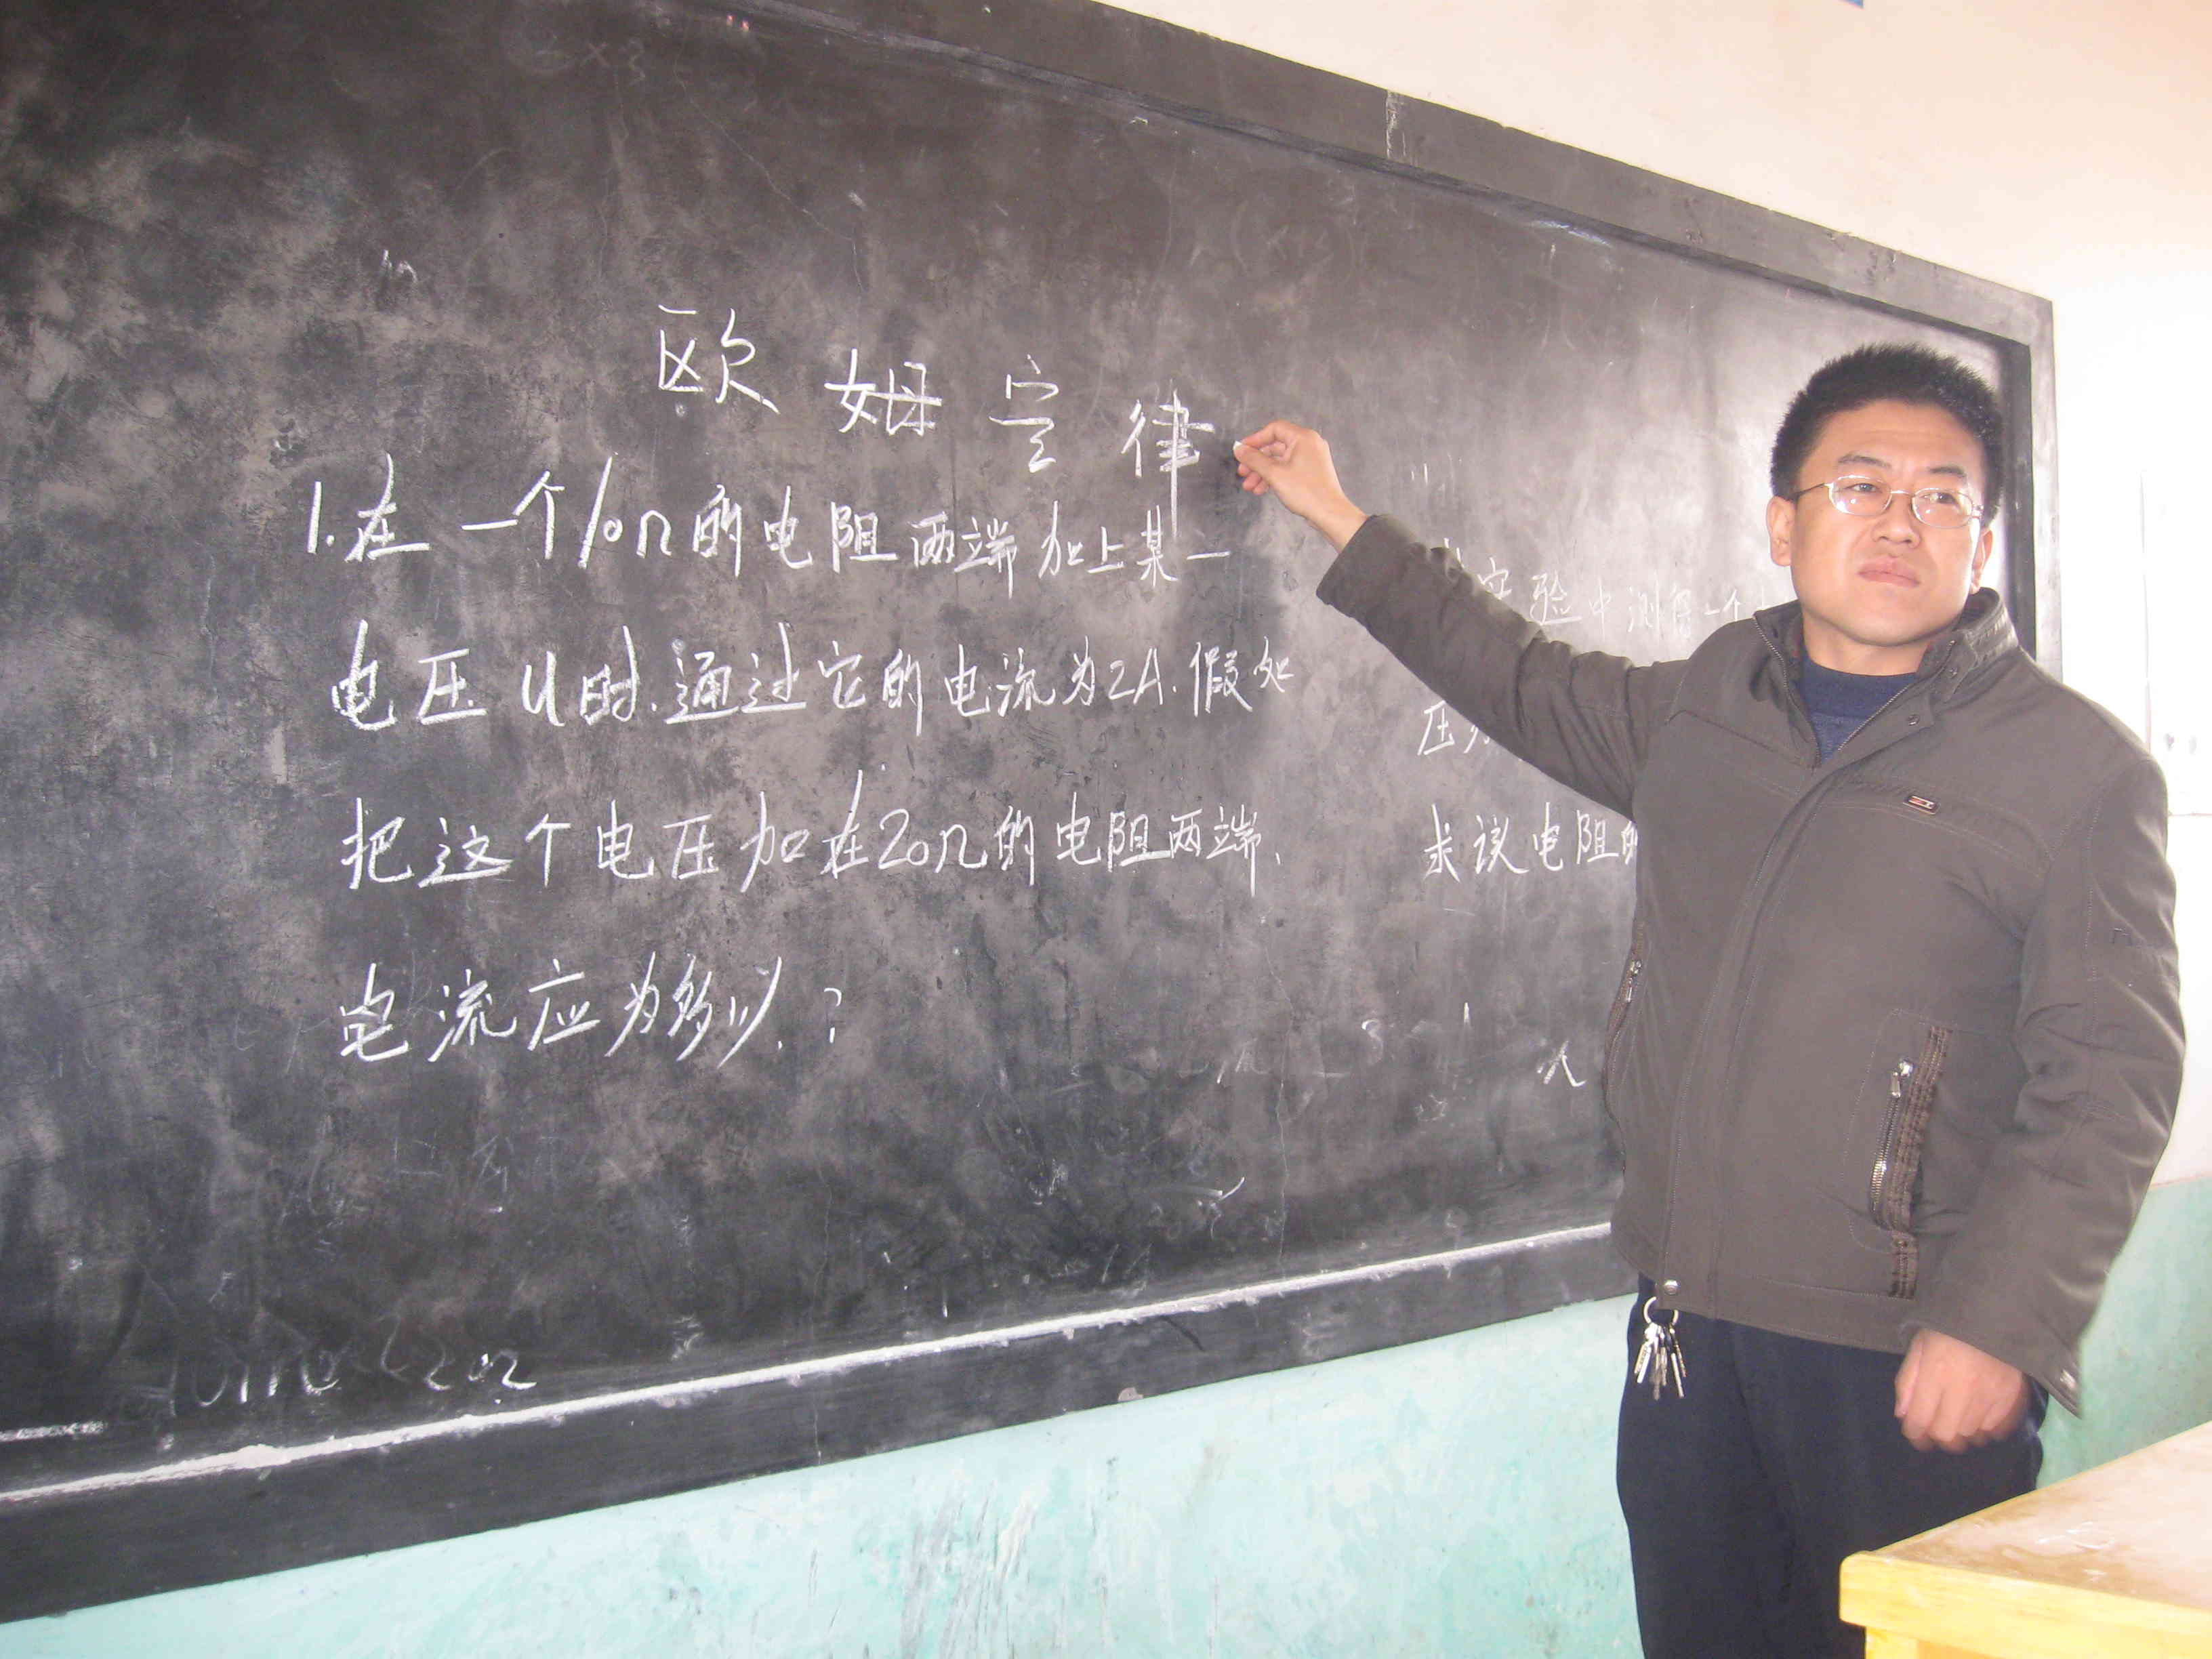 欧姆定律
1.在一个10Ω的电阻两端加上某一
电压U时.通过它的电流为2A.假如
把这个电压加在20Ω的电阻两端、
电流应为多少.?
实验中测得一个
压
求议电阻的